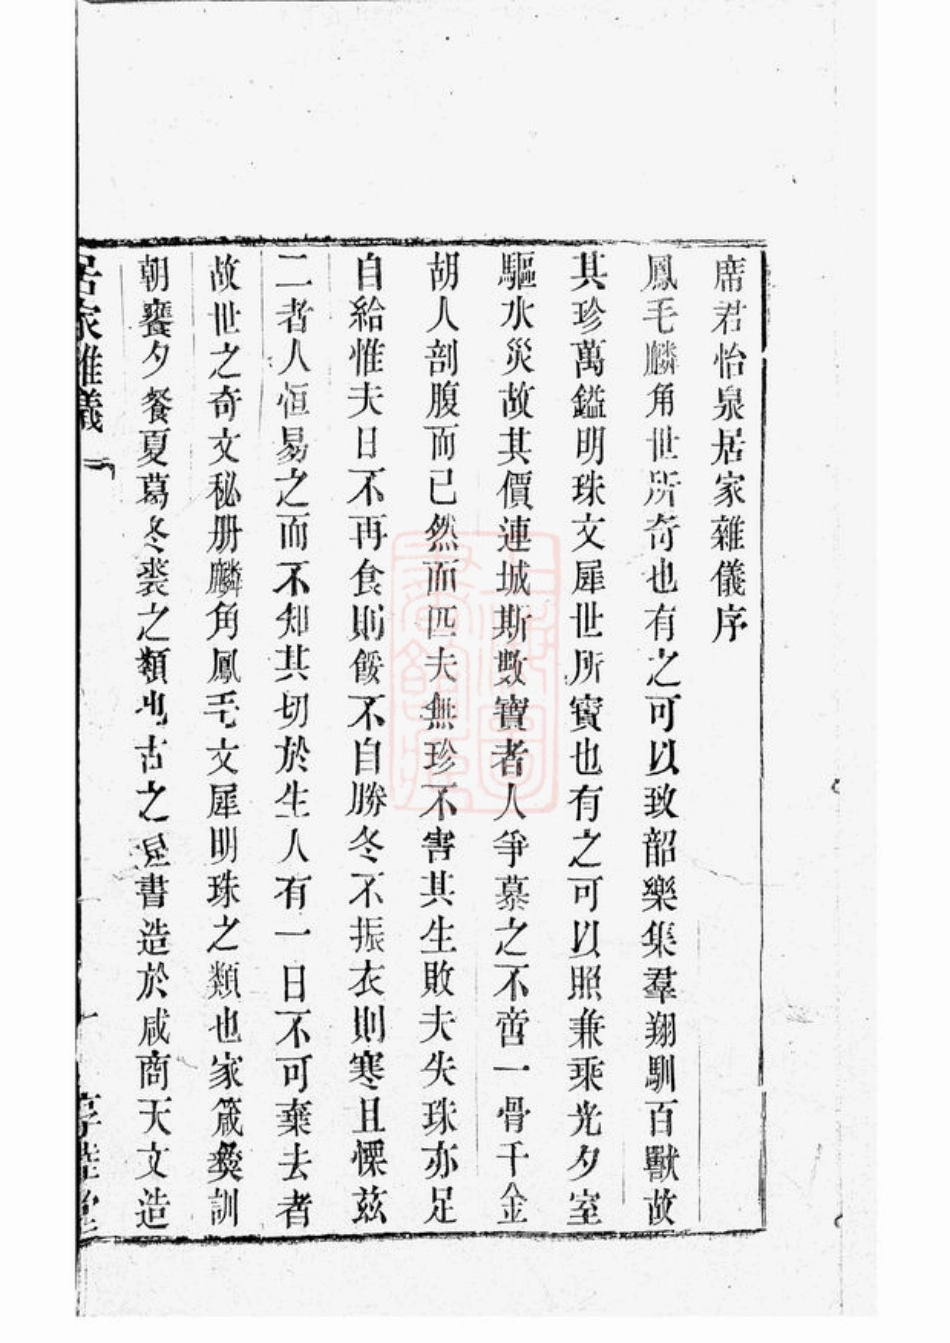 席君怡泉居家雜儀序
鳳毛麟角世所奇也有之可以致韶樂集羣翔馴百獸故
其珍萬鎰明珠文犀世所寳也有之可以照兼乘光夕室
驅水災故其價連城斯數寳者人爭慕之不啻一骨千金
胡人剖腹而已然而匹夫無珍不害其生敗夫失珠亦足
自給惟夫日不再食則餒不自勝冬不振衣則寒且慄茲
二者人恒易之而不知其切於生人有一日不可棄去者
故世之奇文秘册麟角鳳毛文犀明珠之類也家箴彜訓
朝饔夕餐夏葛冬裘之類也古之星書造於咸商天文造
居家雜儀